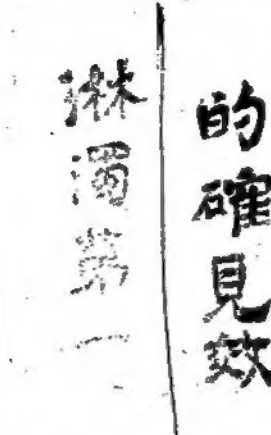 的確見效
淋濁第一